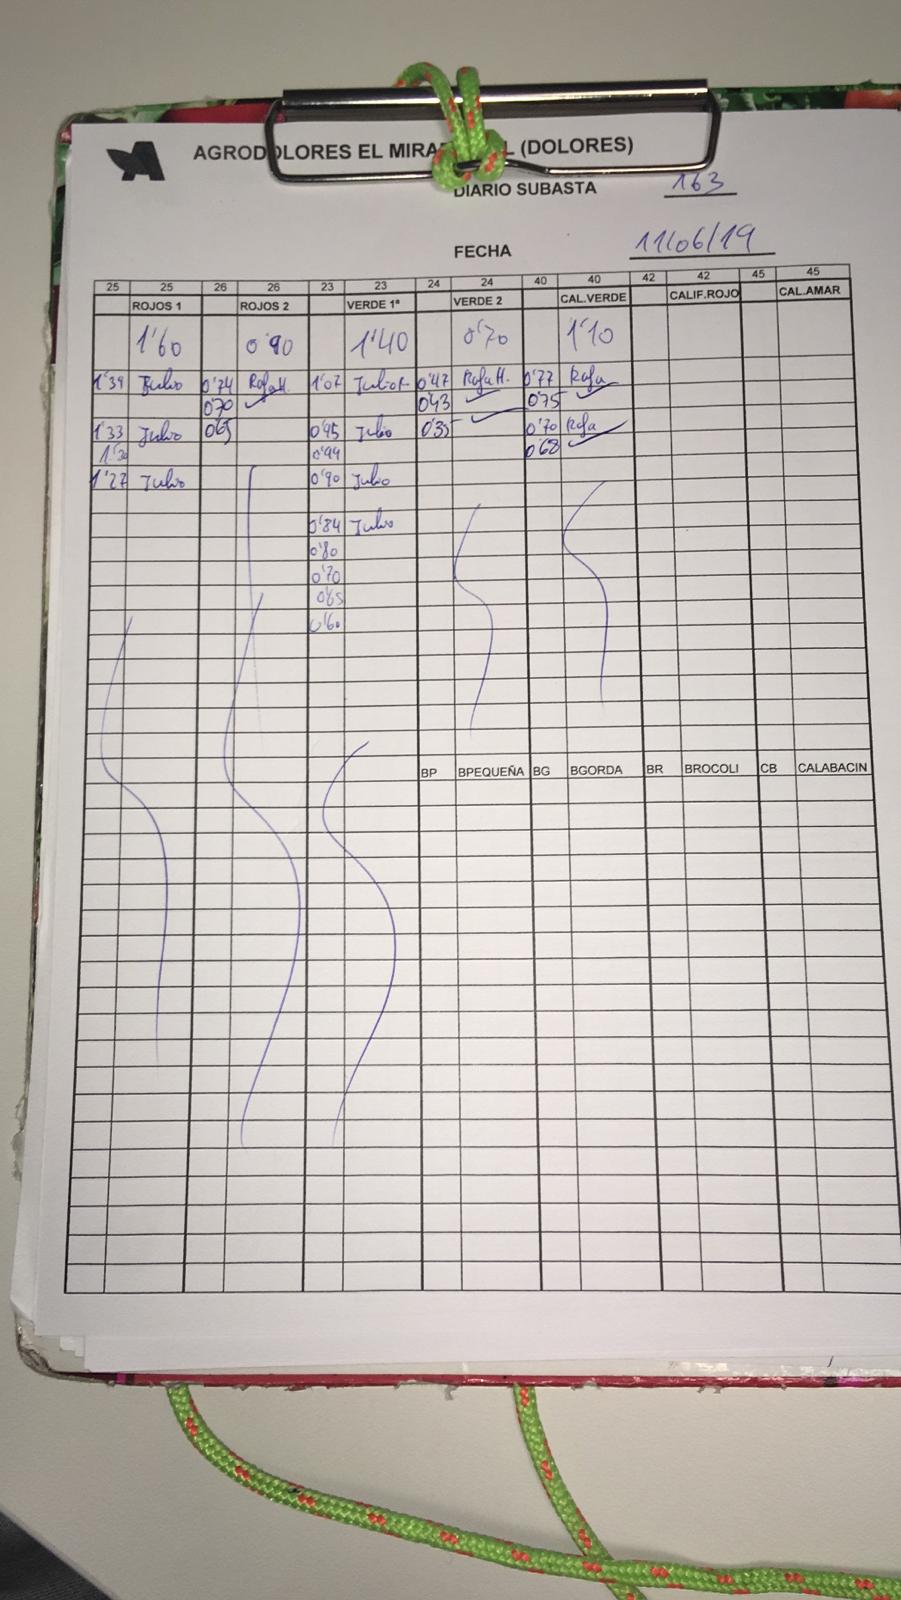 AGRODOLORES EL MIRA L (DOLORES)
DIARIO SUBASTA 163
FECHA 11/06/19
25 25 26 26 23 23 24 24 40 40 42 42 45 45
ROJOS 1 ROJOS 2 VERDE 1ª VERDE 2 CAL.VERDE CALIF.ROJO CAL.AMAR
1'60 0'90 1'40 0'70 1'10
1'39 Julio 0'74 Rafa H. 1'07 Julio 0'47 Rafa H. 0'77 Rafa
0'70 0'43 0'75
1'33 Julio 0'65 0'95 Julio 0'35 0'70 Rafa
1'30 0'94 0'68
1'27 Julio 0'90 Julio
0'84 Julio
0'80
0'70
0'65
0'60
BP BPEQUEÑA BG BGORDA BR BROCOLI CB CALABACIN